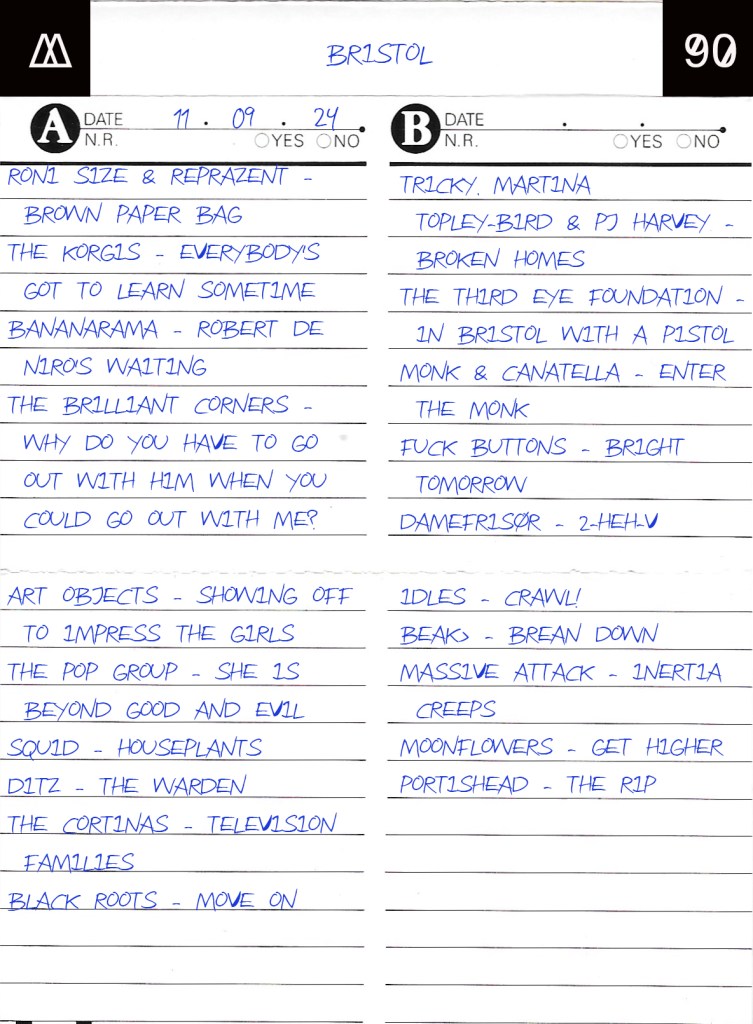 BRISTOL
90
A DATE 11 . 09 . 24
N.R. YES NO
RONI SIZE & REPRAZENT -
BROWN PAPER BAG
THE KORGIS - EVERYBODY'S
GOT TO LEARN SOMETIME
BANANARAMA - ROBERT DE
NIRO'S WAITING
THE BRILLIANT CORNERS -
WHY DO YOU HAVE TO GO
OUT WITH HIM WHEN YOU
COULD GO OUT WITH ME?
ART OBJECTS - SHOWING OFF
TO IMPRESS THE GIRLS
THE POP GROUP - SHE IS
BEYOND GOOD AND EVIL
SQUID - HOUSEPLANTS
DITZ - THE WARDEN
THE CORTINAS - TELEVISION
FAMILIES
BLACK ROOTS - MOVE ON
B DATE . .
N.R. YES NO
TRICKY, MARTINA
TOPLEY-BIRD & PJ HARVEY -
BROKEN HOMES
THE THIRD EYE FOUNDATION -
IN BRISTOL WITH A PISTOL
MONK & CANATELLA - ENTER
THE MONK
FUCK BUTTONS - BRIGHT
TOMORROW
DAMEFRISØR - 2-HEH-V
IDLES - CRAWL!
BEAK> - BREAN DOWN
MASSIVE ATTACK - INERTIA
CREEPS
MOONFLOWERS - GET HIGHER
PORTISHEAD - THE RIP